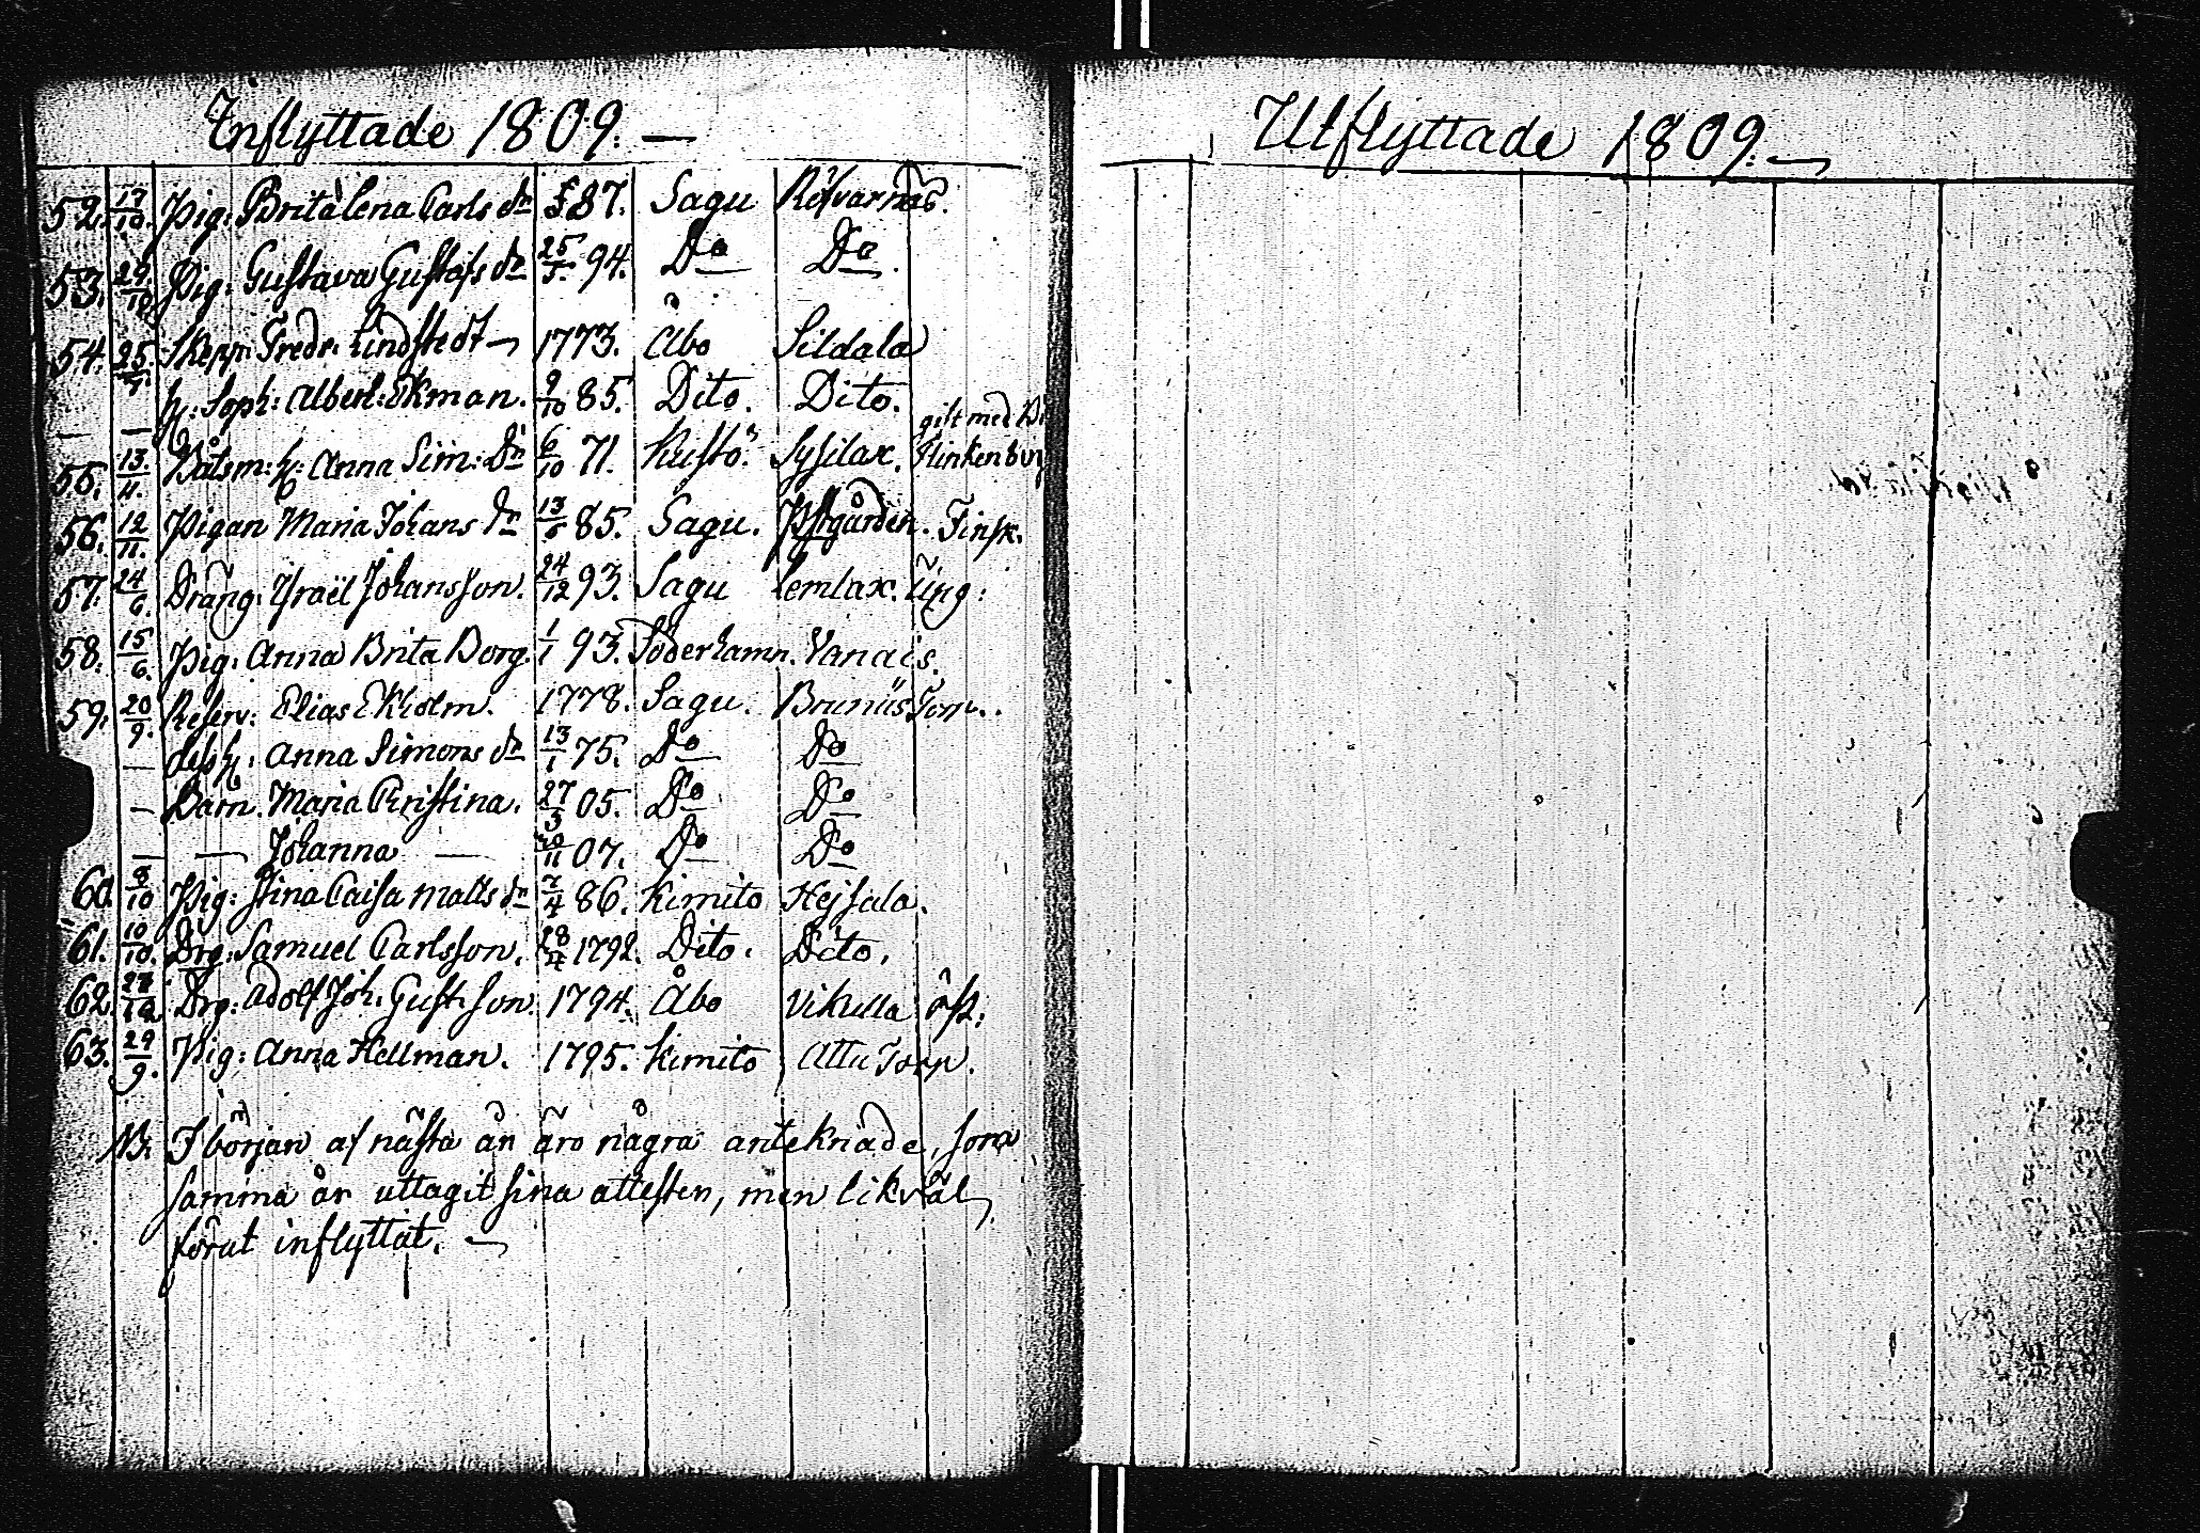 Inflyttade 1809. —
52. 17/10. Pig: Brita Lena Carls dr 87. Sagu Refvarnäs.
53. 29/10 Pig: Gustava Gustafs dr 25/5. 94. Do Do.
54. 25/4. Skepp: Fredr. Lindstedt — 1773. Åbo Sildala
— — h: Soph: Albert: Ekman. 9/10 85. Dito. Dito.
gift med
55. 13./11. Båtsm: h: Anna Sim: Dr 6/10 71. Kustö. Sysilax. Flinkenberg
56. 12/11. Pigan Maria Johans dr 13/5 85. Sagu. Pstgården. Finsk.
57. 24/6. Dräng: Israël Johansson. 24/12 93. Sagu Lemlax. Ung:
58. 15/6. Pig: Anna Brita Borg. 1/1 93. Söderhamn. Vanais.
59. 20/9. Reserv: Elias Ekholm. 1778. Sagu. Bruniis Torp.
— dess h: Anna Simons dr 13/1 75. Do Do
— Barn. Maria Christina. 27/3 05. Do Do
— — Johanna — 07. Do Do
60. 8/10 Pig: Stina Caisa Matts dr 7/4 86. Kimito Hejsala.
61. 10/10. Drg: Samuel Carlsson. 28/4 1792. Dito. Dito.
62. Drg: Adolf Joh. Gust. son. 1794. Åbo Vikulla
63. 29/9. Pig: Anna Hellman. 1795. Kimito Attu Torp.
NB. I början af nästa år äro några anteknade, som
samma år uttagit sina attester, men likväl
förut inflyttat. —
Utflyttade 1809. —